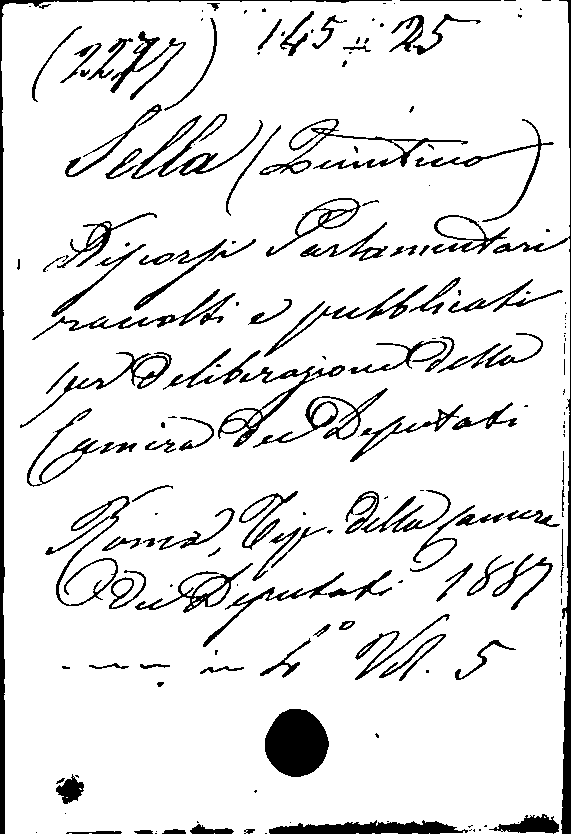 (2277) 145 # 25
Sella (Quintino)
Discorsi Parlamentari
raccolti e pubblicati
per deliberazione della
Camera dei Deputati
Roma, Tip. della Camera
dei Deputati 1887
in 4° Vol. 5